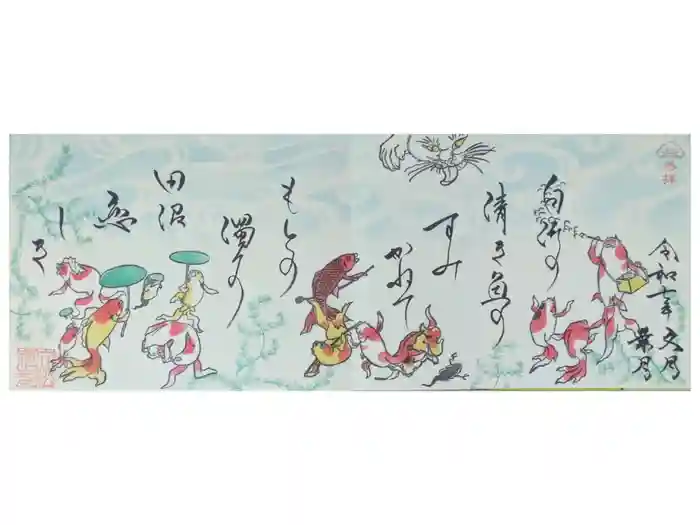 奉拝
令和七年
文月
葉月
白河の
清き魚の
すみ
かねて
もとの
濁りの
田沼
恋
し
き